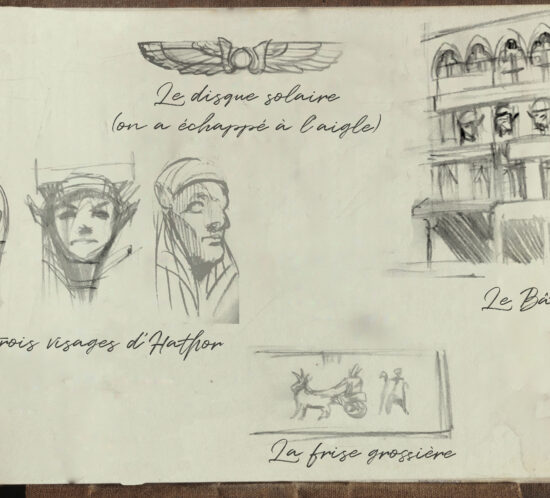 Le disque solaire
(on a échappé à l'aigle)
rois visages d'Hathor
Le Bâ
La frise grossière